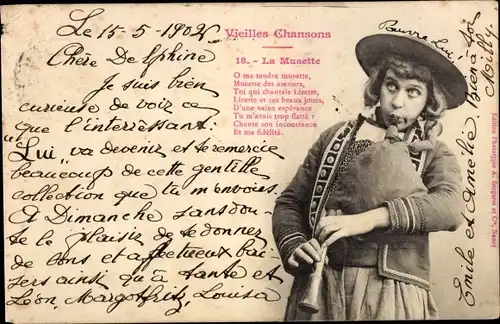 Le 15-5-1902
Chère Delphine
Je suis bien
curieuse de voir ce
que l'interressant:
"Lui" va devenir et te remercie
beaucoup de cette gentille
collection que tu m'envoies.
A Dimanche sans dou-
te le plaisir de te donner
de bons et affectueux bai-
sers ainsi qu'à tante et
Léon, Margot, Fritz, Louisa
Vieilles Chansons
18. - La Musette
O ma tendre musette,
Musette des amours,
Toi qui chantais Lisette,
Lisette et ses beaux jours,
D'une vaine espérance
Tu m'avais trop flatté !
Chante son inconstance
Et ma fidélité.
Pauvre Lui!
Bien à toi
Emile et Amélie